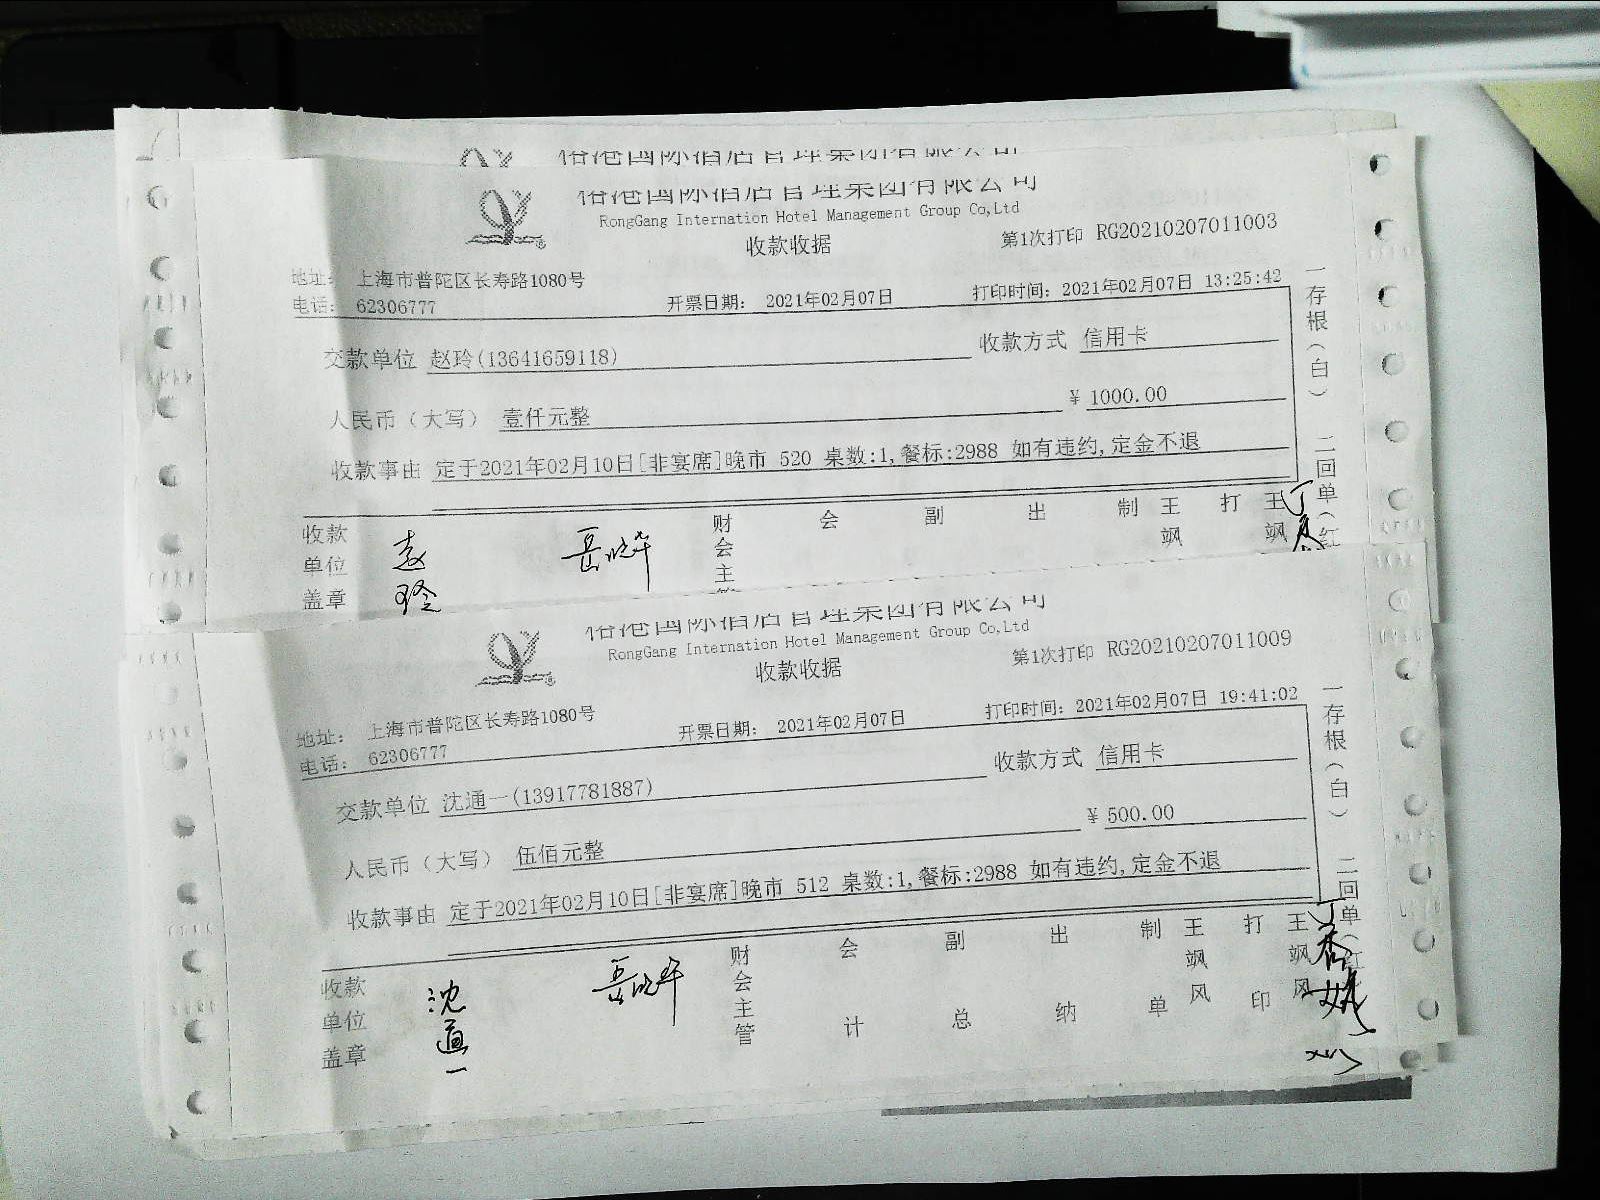 国际酒店管理集团有限公司
国际酒店管理集团有限公司
RongGang Internation Hotel Management Group Co,Ltd
收款收据
第1次打印 RG20210207011003
地址: 上海市普陀区长寿路1080号
电话: 62306777
开票日期: 2021年02月07日
打印时间: 2021年02月07日 13:25:42
交款单位 赵玲(13641659118)
收款方式 信用卡
人民币(大写) 壹仟元整
¥ 1000.00
收款事由 定于2021年02月10日[非宴席]晚市 520 桌数:1,餐标:2988 如有违约,定金不退
一存根(白) 二回单(红
收款单位盖章
赵玲
岳晓华
财会主管 会 副 出 制 王飒 打 王飒
国际酒店管理集团有限公司
RongGang Internation Hotel Management Group Co,Ltd
收款收据
第1次打印 RG20210207011009
地址: 上海市普陀区长寿路1080号
电话: 62306777
开票日期: 2021年02月07日
打印时间: 2021年02月07日 19:41:02
交款单位 沈通一(13917781887)
收款方式 信用卡
人民币(大写) 伍佰元整
¥ 500.00
收款事由 定于2021年02月10日[非宴席]晚市 512 桌数:1,餐标:2988 如有违约,定金不退
一存根(白) 二回单(红
收款单位盖章
沈通一
岳晓华
财会主管 会计 副总 出纳 制单 王飒风 打印 王飒风